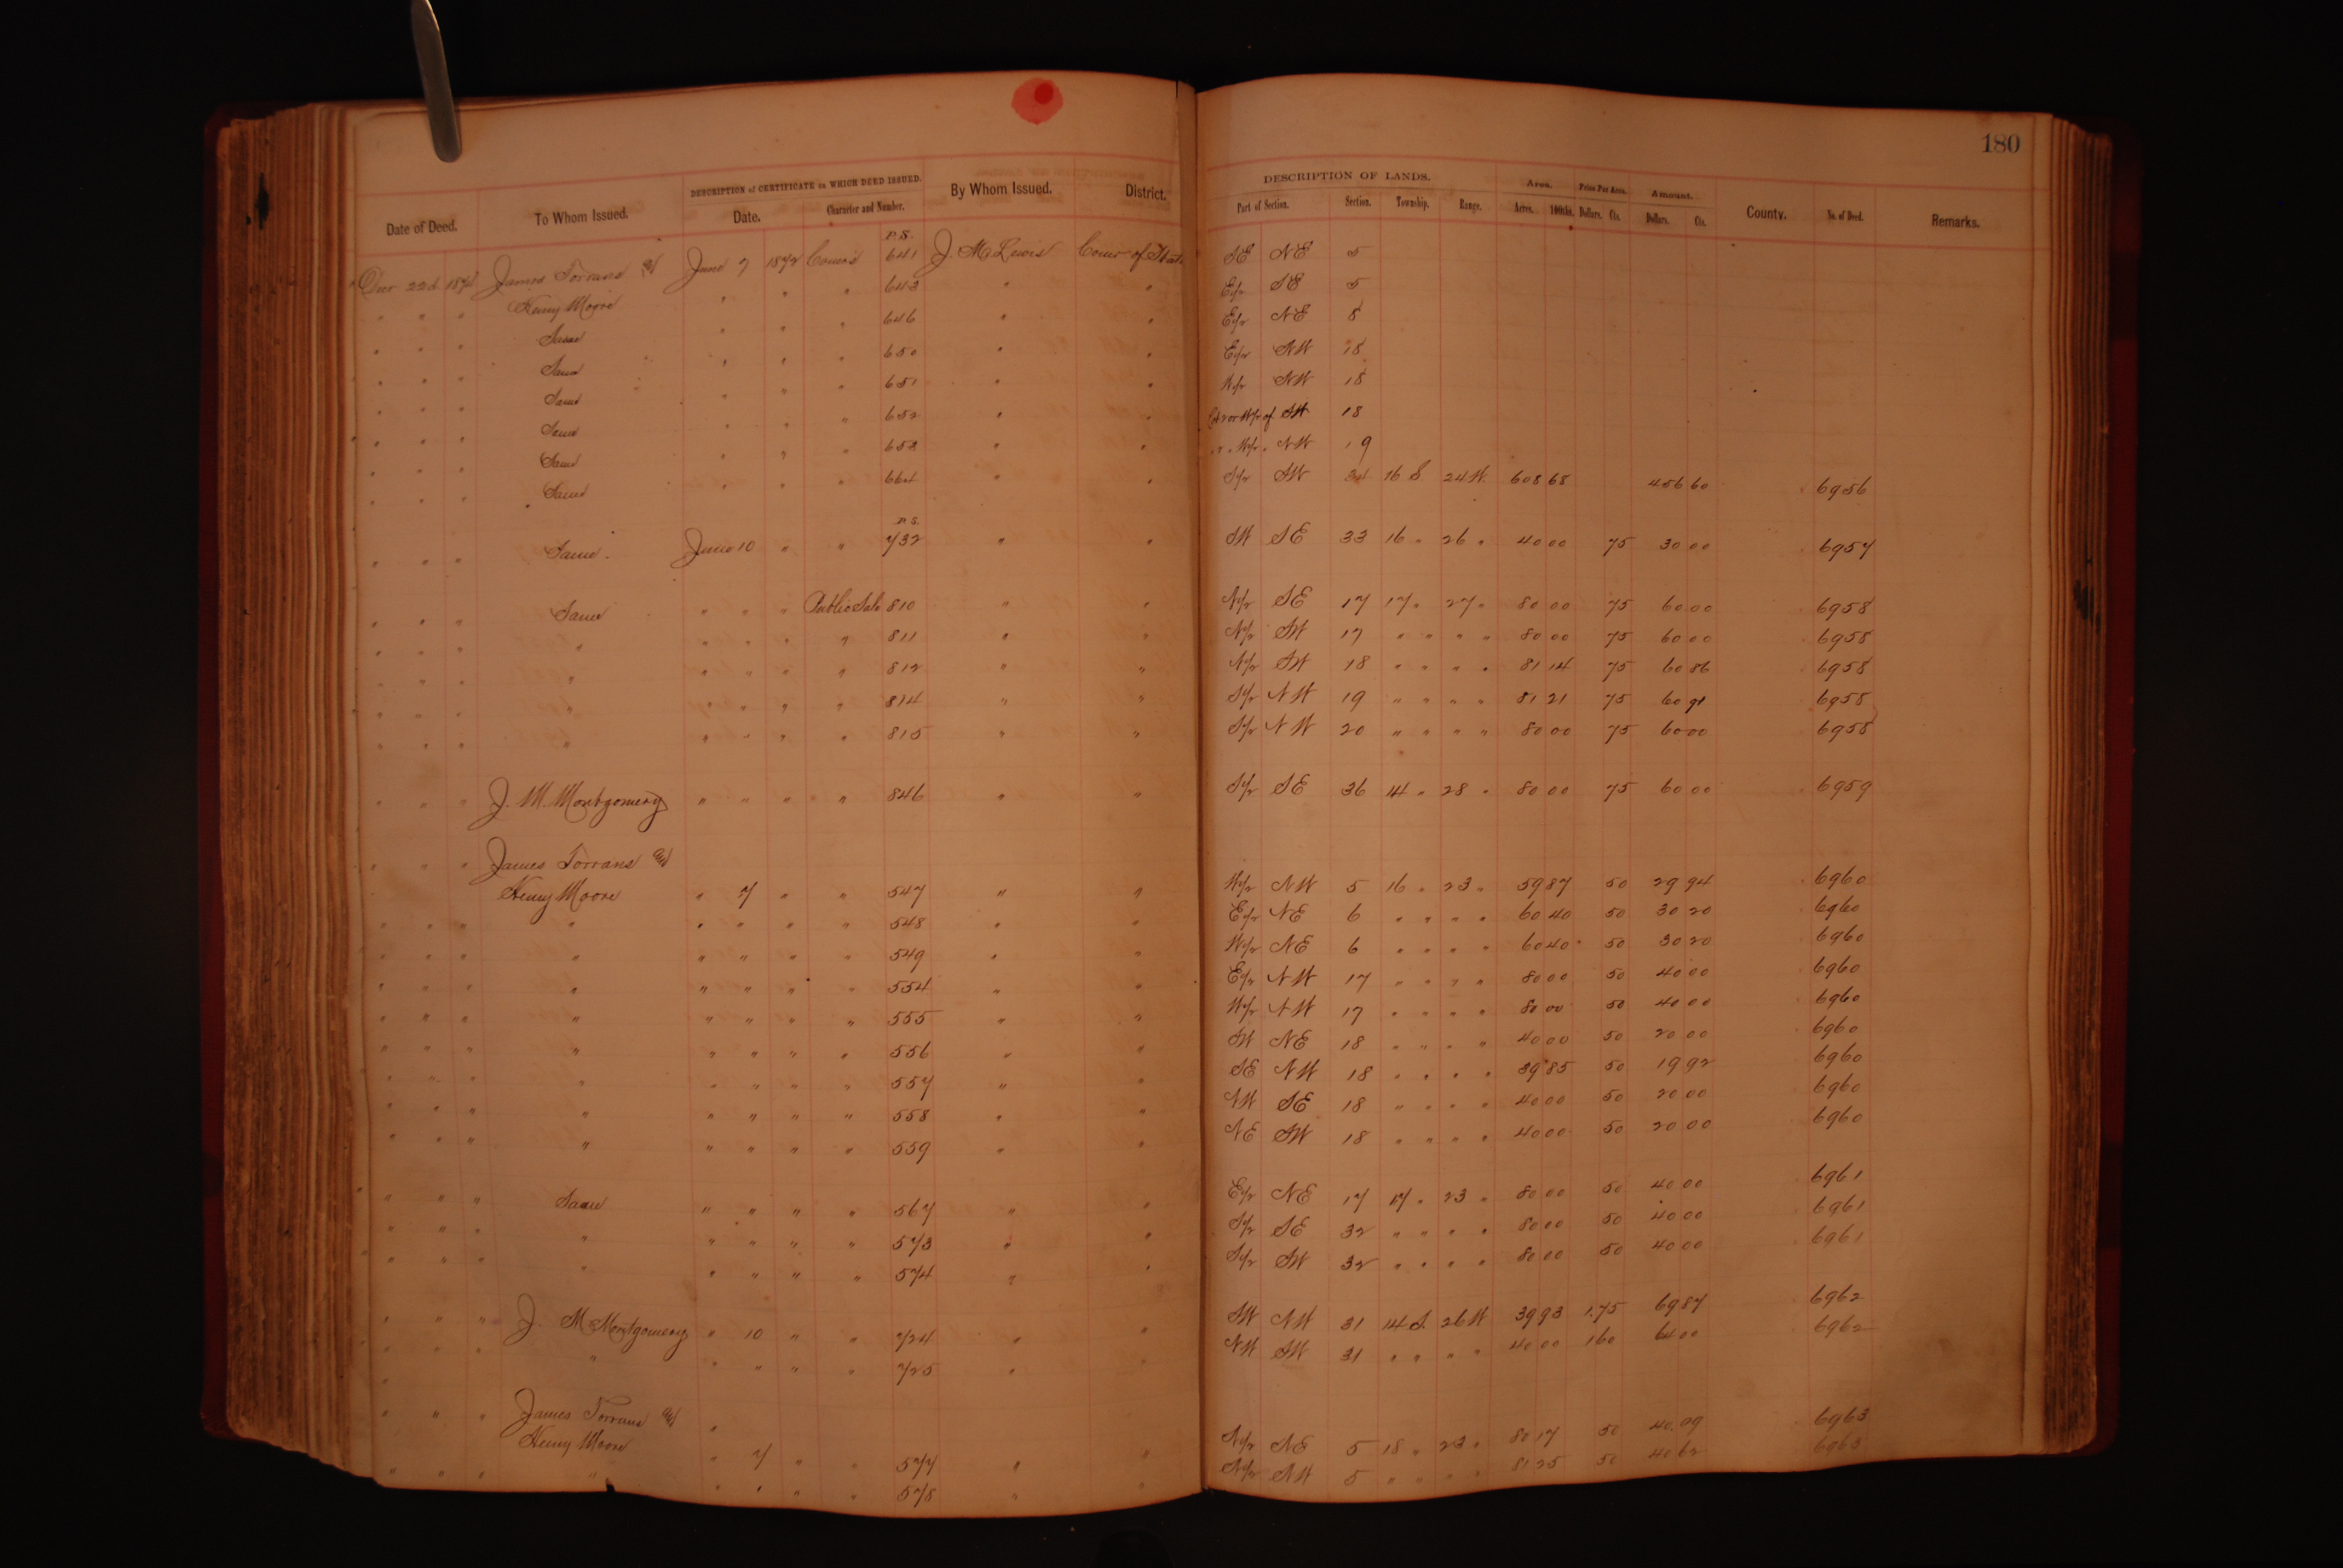 180
DESCRIPTION of CERTIFICATE on WHICH DEED ISSUED. DESCRIPTION OF LANDS. Area. Price Per Acre. Amount.
Date of Deed. To Whom Issued. Date. Character and Number. By Whom Issued. District. Part of Section. Section. Township. Range. Acres. 100ths. Dollars. Cts. Dollars. Cts. County. No. of Deed. Remarks.
P.S.
22d James Torrans June 7 1872 641 J. M. Lewis Comr of State SE NE 5
" " " Henry Moore " " " 643 " " E½ SE 5
" " " Same " " " 646 " " E½ NE 8
" " " Same " " " 650 " " E½ NW 18
" " " Same " " " 651 " " W½ NW 18
" " " Same " " " 652 " " of SW 18
" " " Same " " " 653 " " W½ " NW 19
" " " Same " " " 664 " " S½ SW 34 16 S 24 W 608 65 456 60 6956
P.S.
" " " Same. June 10 " " 732 " " SW SE 33 16 " 26 " 40 00 75 30 00 6957
" " " Same " " " Public Sale 810 " " N½ SE 17 17 " 27 " 80 00 75 60 00 6958
" " " " " " " " 811 " " N½ SW 17 " " " " 80 00 75 60 00 6958
" " " " " " " " 812 " " N½ SW 18 " " " " 81 14 75 60 86 6958
" " " " " " " " 814 " " S½ NW 19 " " " " 81 21 75 60 91 6958
" " " " " " " " 815 " " S½ NW 20 " " " " 80 00 75 60 00 6958
" " " J. M. Montgomery " " " " 846 " " S½ SE 36 14 " 28 " 80 00 75 60 00 6959
" " " James Torrans and
Henry Moore " 7 " " 547 " " W½ NW 5 16 " 23 " 59 87 50 29 94 6960
" " " " " " " " 548 " " E½ NE 6 " " " " 60 40 50 30 20 6960
" " " " " " " " 549 " " W½ NE 6 " " " " 60 40 50 30 20 6960
" " " " " " " " 554 " " E½ NW 17 " " " " 80 00 50 40 00 6960
" " " " " " " " 555 " " W½ NW 17 " " " " 80 00 50 40 00 6960
" " " " " " " " 556 " " SW NE 18 " " " " 40 00 50 20 00 6960
" " " " " " " " 557 " " SE NW 18 " " " " 39 85 50 19 92 6960
" " " " " " " " 558 " " NW SE 18 " " " " 40 00 50 20 00 6960
" " " " " " " " 559 " " NE SW 18 " " " " 40 00 50 20 00 6960
" " " Same " " " " 567 " " E½ NE 17 17 " 23 " 80 00 50 40 00 6961
" " " " " " " " 573 " " S½ SE 32 " " " " 80 00 50 40 00 6961
" " " " " " " " 574 " " S½ SW 32 " " " " 80 00 50 40 00 6961
" " " J. M. Montgomery " 10 " " 724 " " SW NW 31 14 S. 26 W 39 93 1.75 69 87 6962
" " " " " " " " 725 " " NW SW 31 " " " " 40 00 1 60 64 00 6962
" " " James Torrans and "
Henry Moore " 7 " " 577 " " N½ NE 5 18 " 23 " 80 17 50 40.09 6963
" " " " " " " " 578 " " N½ NW 5 " " " " 81 25 50 40 62 6963